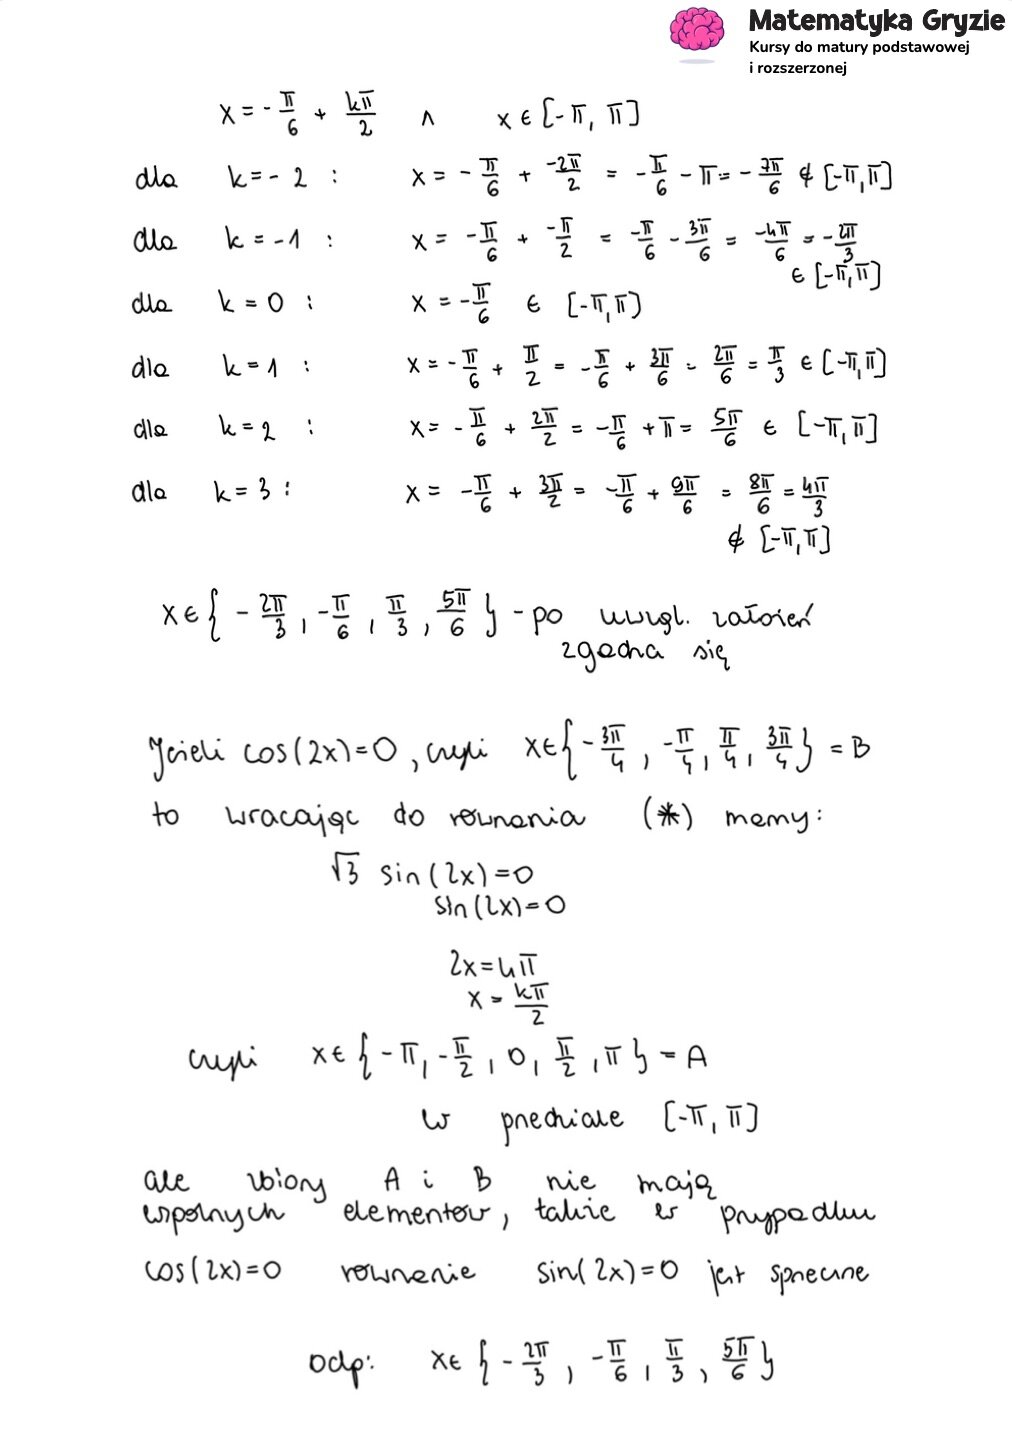 Matematyka Gryzie
Kursy do matury podstawowej
i rozszerzonej
x = -π/6 + kπ/2 ∧ x ∈ [-π, π]
dla k = -2 : x = -π/6 + -2π/2 = -π/6 - π = -7π/6 ∉ [-π,π]
dla k = -1 : x = -π/6 + -π/2 = -π/6 - 3π/6 = -4π/6 = -2π/3
∈ [-π,π]
dla k = 0 : x = -π/6 ∈ [-π,π]
dla k = 1 : x = -π/6 + π/2 = -π/6 + 3π/6 = 2π/6 = π/3 ∈ [-π,π]
dla k = 2 : x = -π/6 + 2π/2 = -π/6 + π = 5π/6 ∈ [-π,π]
dla k = 3 : x = -π/6 + 3π/2 = -π/6 + 9π/6 = 8π/6 = 4π/3
∉ [-π,π]
x ∈ { -2π/3 , -π/6 , π/3 , 5π/6 } - po uwzgl. założeń
zgadza się
Jeżeli cos(2x)=0, czyli x∈{ -3π/4 , -π/4 , π/4 , 3π/4 } = B
to wracając do równania (*) mamy:
√3 sin(2x)=0
sin(2x)=0
2x = kπ
x = kπ/2
czyli x∈ { -π, -π/2 , 0, π/2 , π } = A
w przedziale [-π, π]
ale zbiory A i B nie mają
wspólnych elementów, także w przypadku
cos(2x)=0 równanie sin(2x)=0 jest sprzeczne
odp: x∈ { -2π/3 , -π/6 , π/3 , 5π/6 }